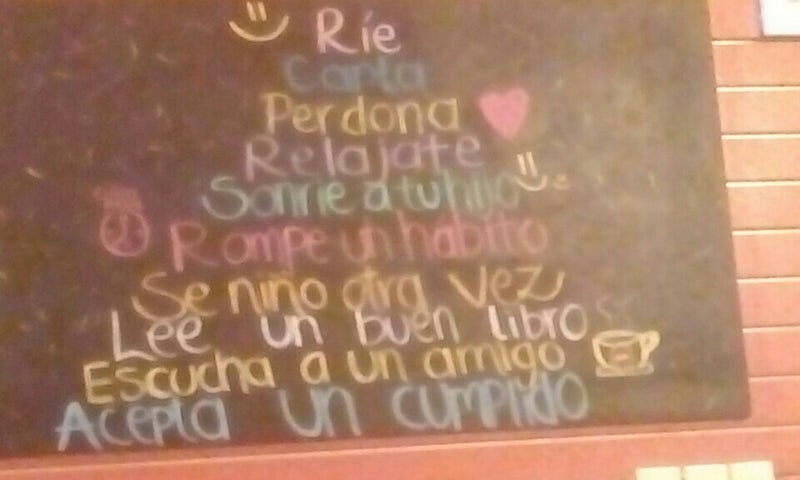 Ríe
Canta
Perdona
Relajate
Sonríe a tu hijo
Rompe un habito
Se niño otra vez
Lee un buen libro
Escucha a un amigo
Acepta un cumplido